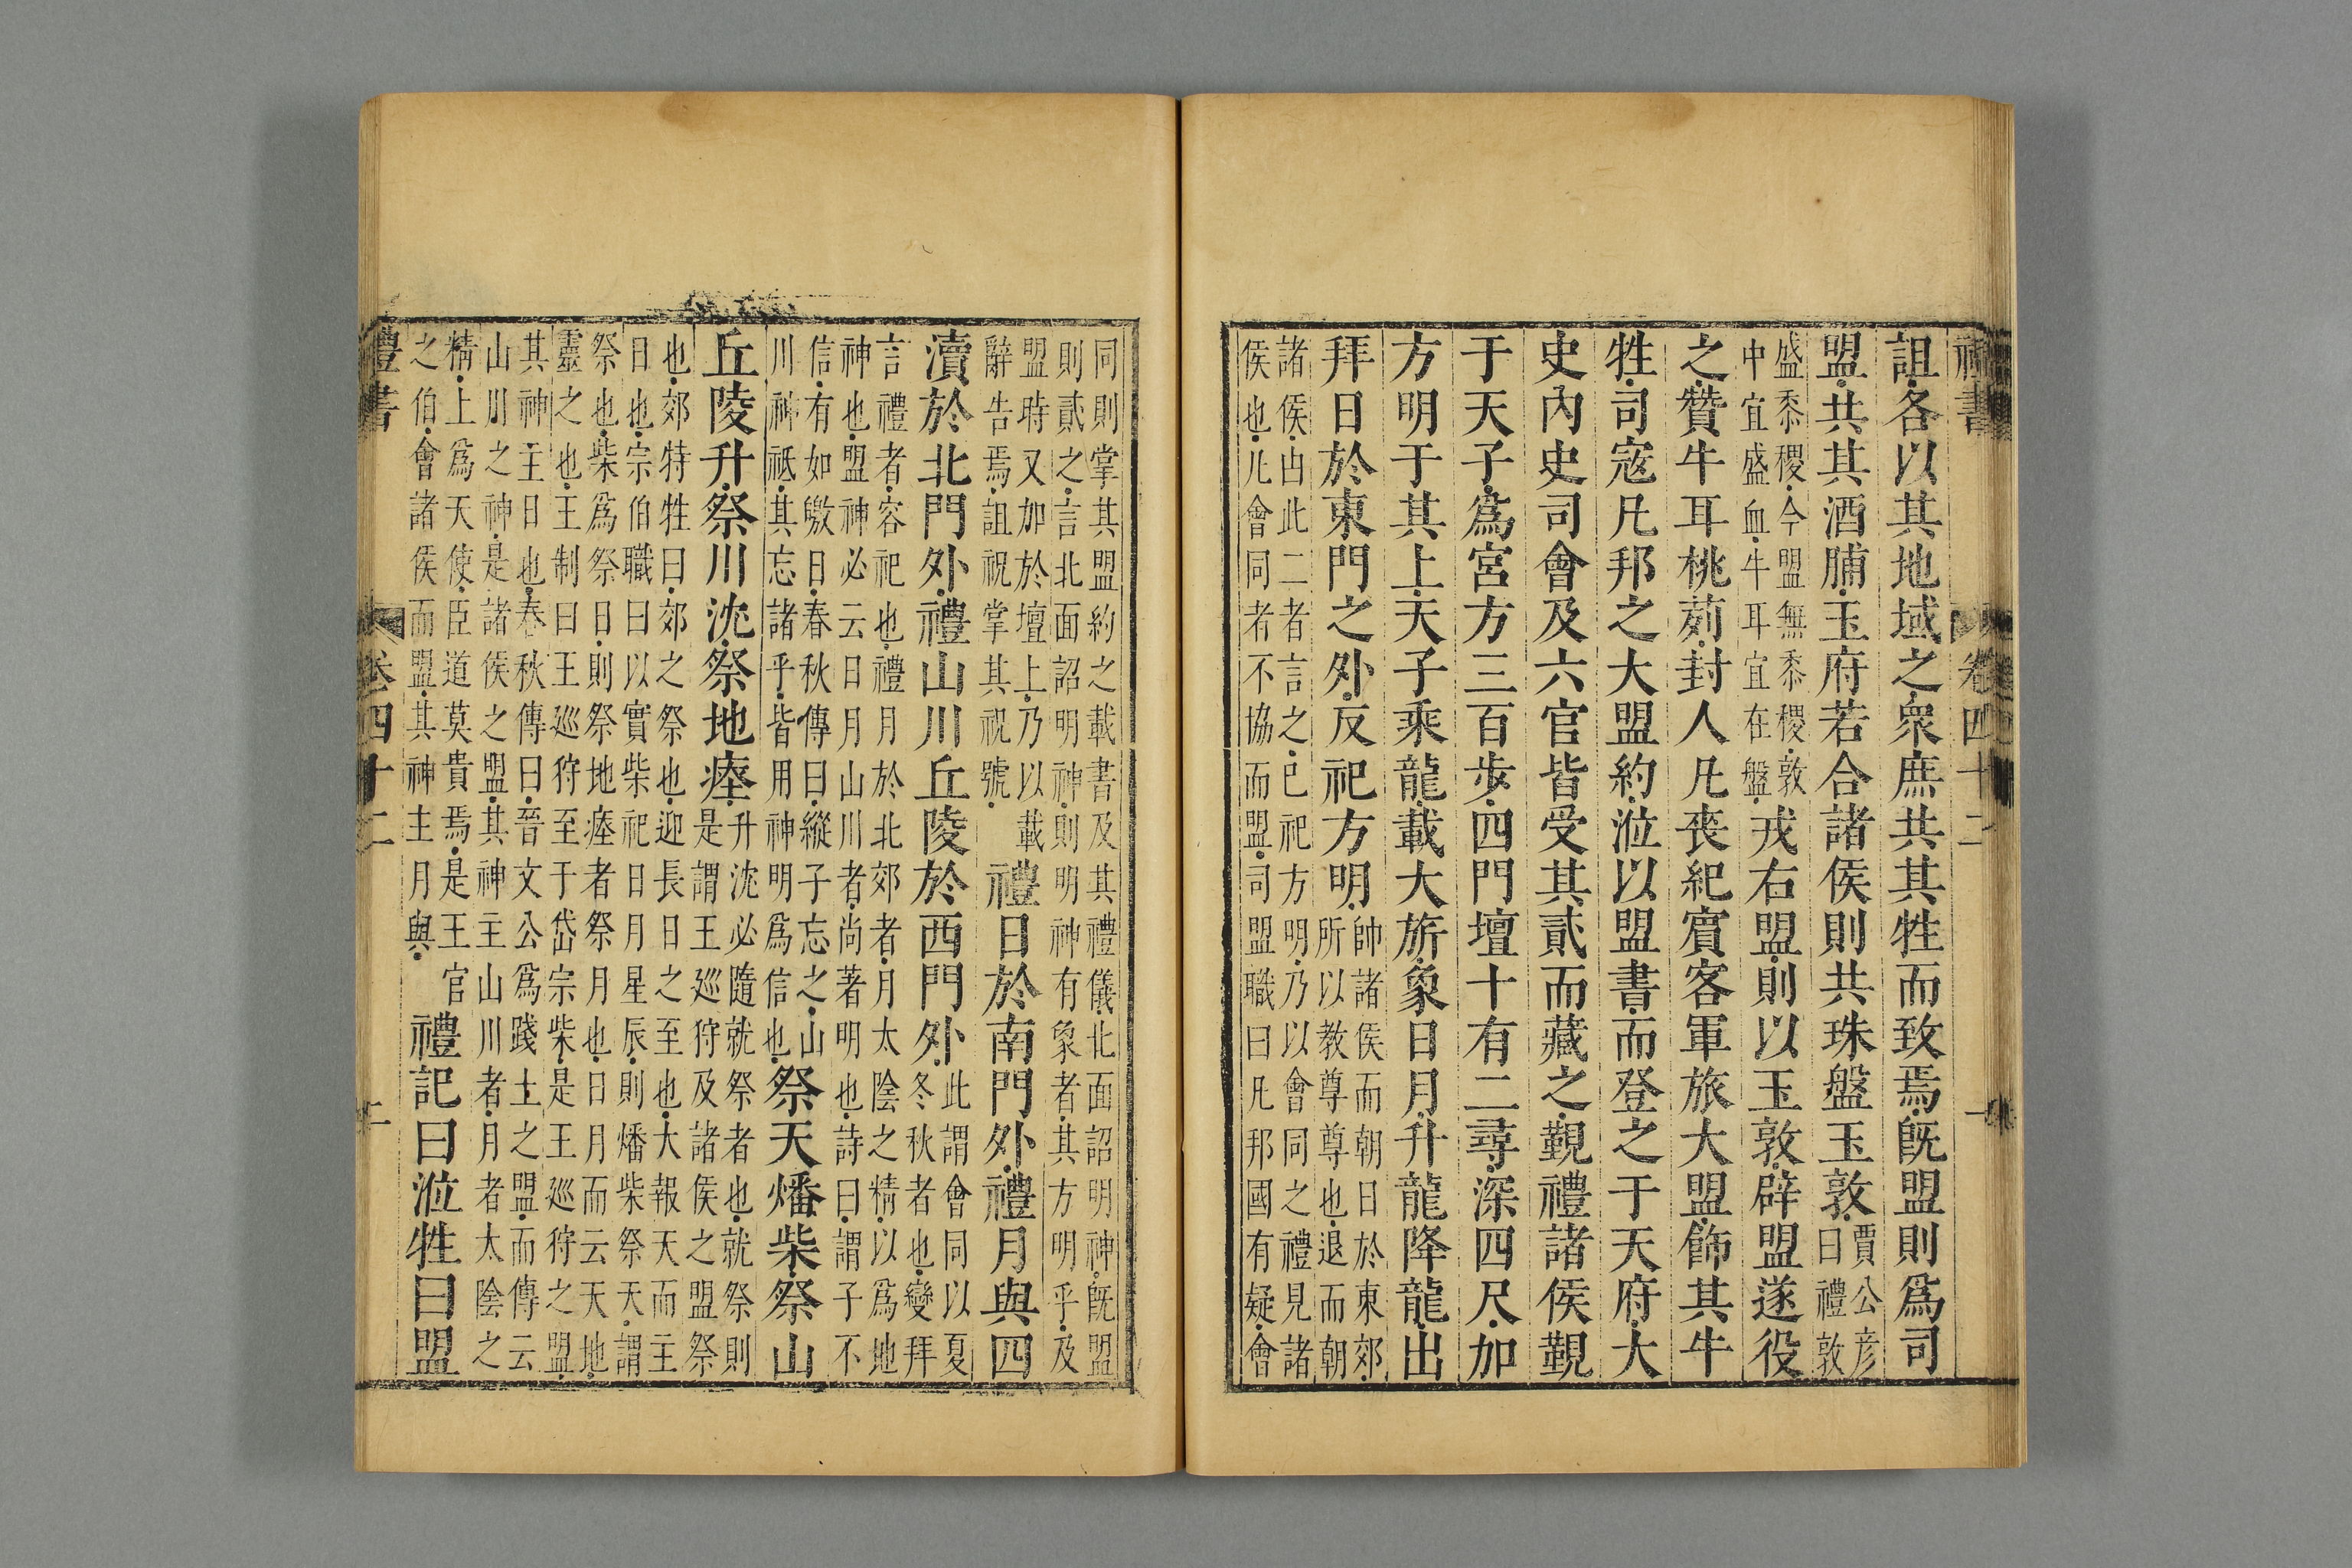 禮書 卷四十二 一
詛各以其地域之衆庶共其牲而致焉旣盟則爲司
盟共其酒脯玉府若合諸侯則共珠盤玉敦賈公彦
曰禮敦
盛黍稷今盟無黍稷敦
中宜盛血牛耳宜在盤戎右盟則以玉敦辟盟遂役
之贊牛耳桃茢封人凡喪紀賓客軍旅大盟飾其牛
牲司寇凡邦之大盟約涖以盟書而登之于天府大
史內史司會及六官皆受其貳而藏之覲禮諸侯覲
于天子爲宮方三百步四門壇十有二尋深四尺加
方明于其上天子乘龍載大旂象日月升龍降龍出
拜日於東門之外反祀方明帥諸侯而朝日於東郊
所以教尊尊也退而朝
諸侯由此二者言之已祀方明乃以會同之禮見諸
侯也凡會同者不協而盟司盟職曰凡邦國有疑會
同則掌其盟約之載書及其禮儀北面詔明神旣盟
則貳之言北面詔明神則明神有象者其方明乎及
盟時又加於壇上乃以載
辭告焉詛祝掌其祝號禮日於南門外禮月與四
瀆於北門外禮山川丘陵於西門外此謂會同以夏
冬秋者也變拜
言禮者容祀也禮月於北郊者月太陰之精以爲地
神也盟神必云日月山川者尚著明也詩曰謂子不
信有如皦日春秋傳曰縱子忘之山
川神祗其忘諸乎皆用神明爲信也祭天燔柴祭山
丘陵升祭川沈祭地瘞升沈必隨就祭者也就祭則
是謂王巡狩及諸侯之盟祭
也郊特牲曰郊之祭也迎長日之至也大報天而主
日也宗伯職曰以實柴祀日月星辰則燔柴祭天謂
祭也柴爲祭日則祭地瘞者祭月也日月而云天地
靈之也王制曰王巡狩至于岱宗柴是王巡狩之盟
其神主日也春秋傳曰晉文公爲踐土之盟而傳云
山川之神是諸侯之盟其神主山川者月者太陰之
精上爲天使臣道莫貴焉是王官
之伯會諸侯而盟其神主月與禮記曰涖牲曰盟
禮書 卷四十二